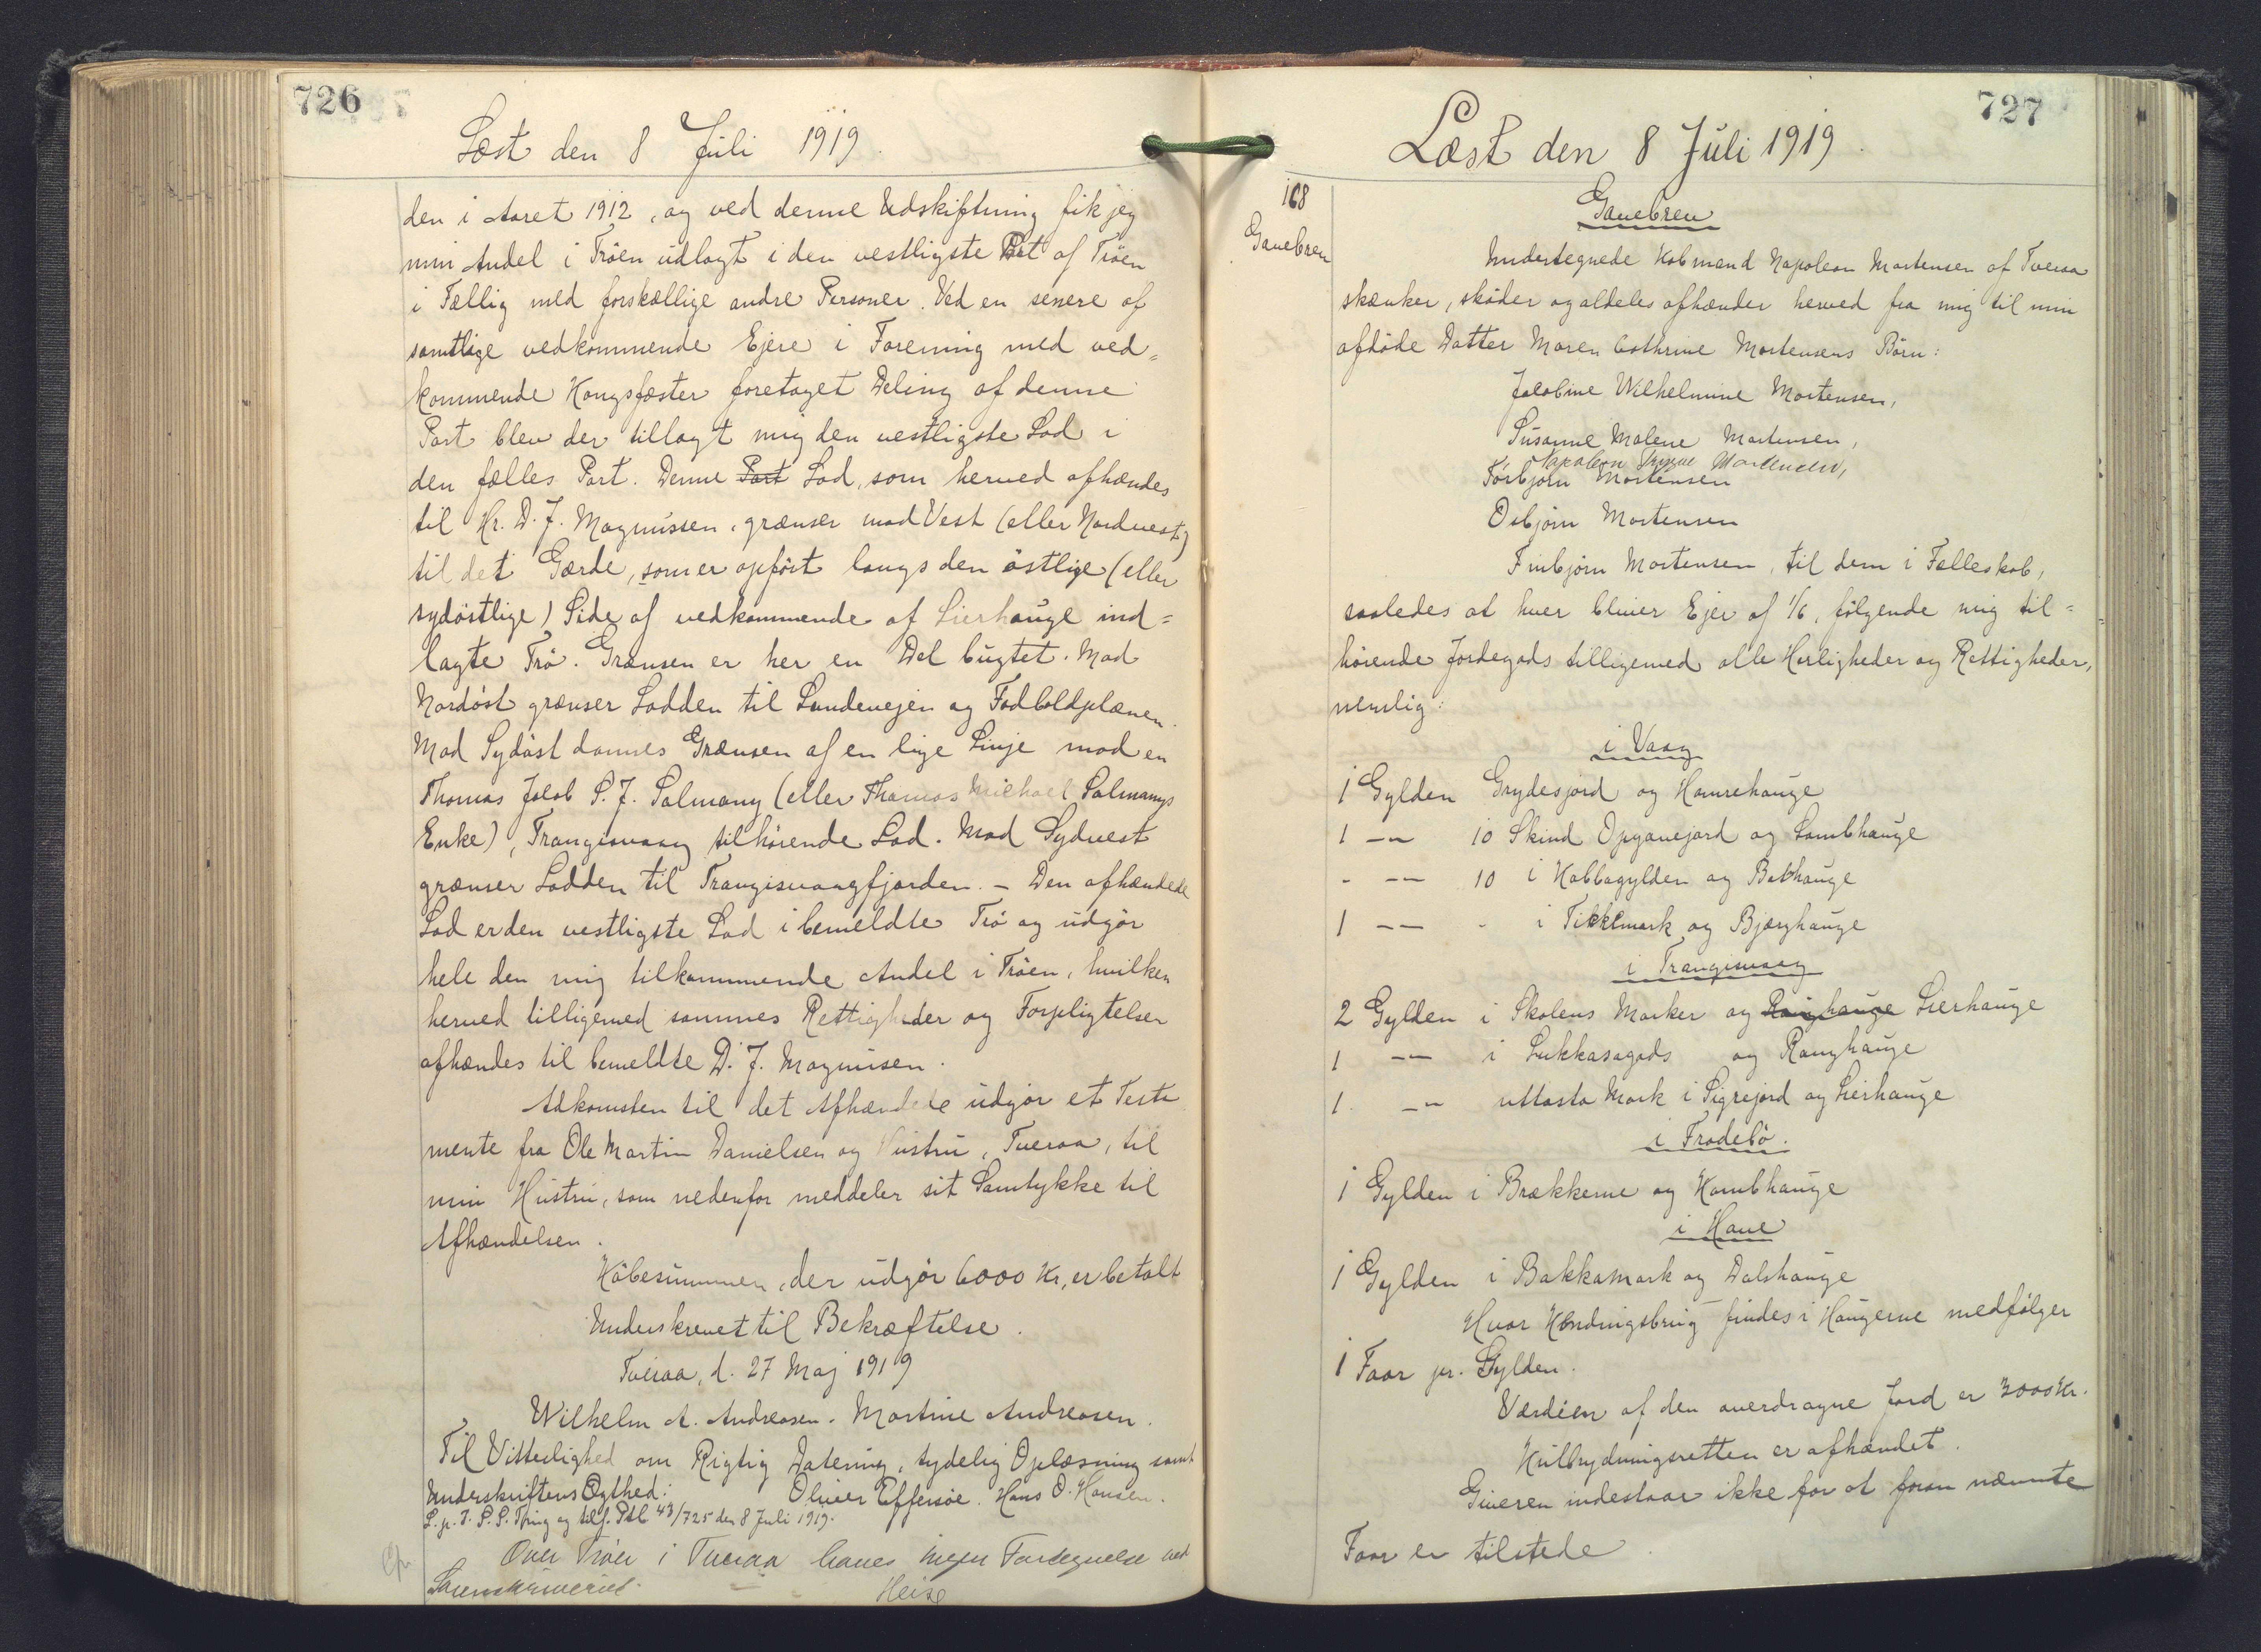 726
Læst den 8 Juli 1919.
den i Aaret 1912, og ved denne Udskiftning fik jeg
min Andel i Trøen udlagt i den vestligste Part af Trøen
i Fællig med forskællige andre Personer. Ved en senere af
samtlige vedkommende Ejere i Forening med ved=
kommende Kongsfæster foretaget Deling af denne
Part blev der tillagt mig den vestligste Lod i
den fælles Part. Denne Part Lod, som herved afhændes
til Hr. D. J. Magnussen, grænser mod Vest (eller Nordvest)
til det Gærde, som er opført langs den østlige (eller
sydøstlige) Side af vedkommende af Lierhauge ind=
lagte Trø. Grænsen er her en Del bugtet. Mod
Nordøst grænser Lodden til Landevejen og Fodboldplænen.
Mod Sydøst dannes Grænsen af en lige Linje mod en
Thomas Jakob S. J. Salmany (eller Thomas Michael Salmanys
Enke), Trangisvaag tilhørende Lod. Mod Sydvest
grænser Lodden til Trangisvaagfjorden. - Den afhændede
Lod er den vestligste Lod i bemeldte Trø og udgør
hele den mig tilkommende Andel i Trøen, hvilken
herved tilligemed sammes Rettigheder og Forpligtelser
afhændes til bemeldte D. J. Magnusen.
Adkomsten til det Afhændede udgør et Testa
mente fra Ole Martin Danielsen og Hustru, Tveraa, til
min Hustru, som nedenfor meddeler sit Samtykke til
Afhændelsen.
Købesummen, der udgør 6000 Kr, er betalt
Underskrevet til Bekræftelse.
Tveraa, d. 27 Maj 1919
Wilhelm A. Andreasen. Martine Andreasen.
Til Vitterlighed om Rigtig Datering, tydelig Oplæsning samt
Underskriftens Ægthed: Oliver Effersøe. Hans O. Hansen.
L. p. T. S. S. Ting og tilf. Ptb 43/725 den 8 Juli 1919.
Over Trøer i Tveraa haves ingen Fortegnelse ved
Sorenskriveriet.
Heise
727
Læst den 8 Juli 1919.
168
Gavebrev
Gavebrev
Undertegnede Købmand Napoleon Mortensen af Tveraa
skænker, skøder og aldeles afhænder herved fra mig til min
afdøde Datter Maren Cathrine Mortensens Børn:
Jakobine Wilhelmine Mortensen,
Susanne Malene Mortensen,
Napoleon Mortensen,
Torbjørn Mortensen
Osbjørn Mortensen
Finbjørn Mortensen, til dem i Fælleskab,
saaledes at hver bliver Ejer af 1/6, følgende mig til=
hørende Jordegods tilligemed alle Herligheder og Rettigheder,
nemlig:
i Vaag
1 Gylden Grydesjord og Hamrehauge
1 —"— 10 Skind Opgavejord og Lambhauge
- —"— 10 i Kobbagylden og Bobhauge
1 —"— - i Tikkemark og Bjærghauge
i Trangisvaag
2 Gylden i Skolens Marker og Ranghauge Lierhauge
1 —"— i Lukkasagods og Ranghauge
1. —"— uttasta Mark i Sigrejord og Lierhauge
i Frodebø.
1 Gylden i Brækkerne og Kambhauge
i Have
1 Gylden i Bakkamark og Dalshauge
Hvor Kendingsbrug findes i Haugerne medfølger
1 Faar pr. Gylden.
Værdien af den overdragne Jord er 3000 Kr.
Kulbrydningsretten er afhændet.
Giveren indestaar ikke for at foran nævnte
Faar er tilstede.